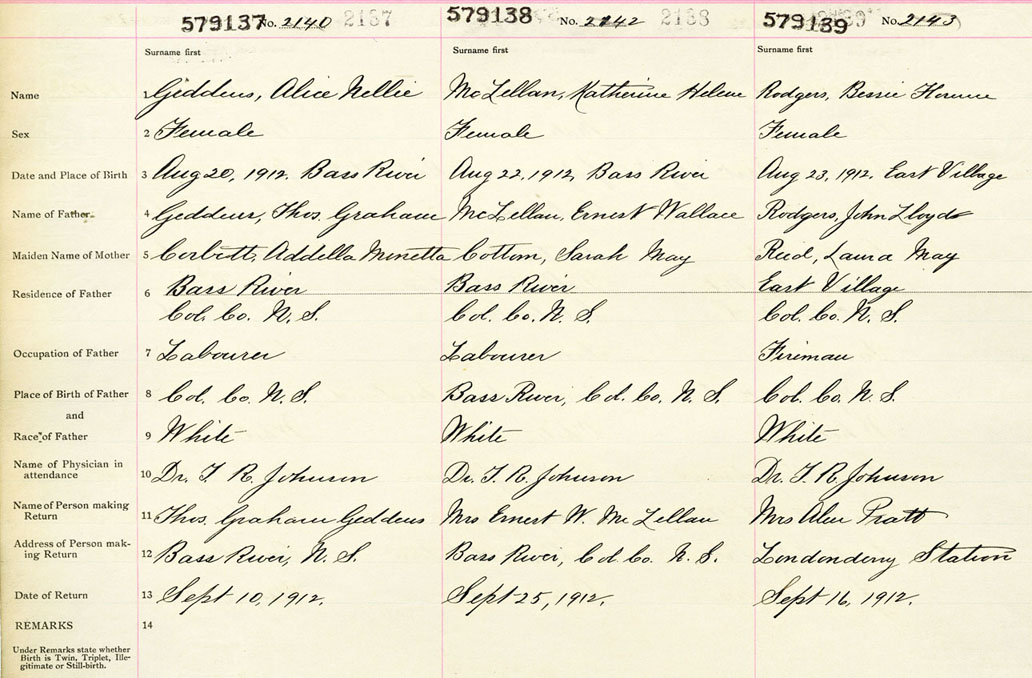 579137 No. 2140 2187 579138 No. 2142 2188 579139 No. 2143
Surname first Surname first Surname first
Name 1 Geddens, Alice Nellie McLellan, Katherine Helene Rodgers, Bessie Florence
Sex 2 Female Female Female
Date and Place of Birth 3 Aug 20, 1912. Bass River Aug 22, 1912, Bass River Aug 23, 1912. East Village
Name of Father 4 Geddens, Thos. Graham McLellan, Ernest Wallace Rodgers, John Lloyd
Maiden Name of Mother 5 Corbett, Addella Minetta Cottom, Sarah May Reid, Laura May
Residence of Father 6 Bass River Bass River East Village
Col. Co. N. S. Col. Co. N. S. Col. Co. N. S.
Occupation of Father 7 Labourer Labourer Fireman
Place of Birth of Father 8 Col. Co. N. S. Bass River, Col. Co. N. S. Col. Co. N. S.
and
Race of Father 9 White White White
Name of Physician in
attendance 10 Dr. T. R. Johnson Dr. T. R. Johnson Dr. T. R. Johnson
Name of Person making
Return 11 Thos. Graham Geddens Mrs Ernest W. McLellan Mrs Alex Pratt
Address of Person mak-
ing Return 12 Bass River, N. S. Bass River, Col. Co. N. S. Londonderry Station
Date of Return 13 Sept 10, 1912. Sept 25, 1912. Sept 16, 1912.
REMARKS 14
Under Remarks state whether
Birth is Twin, Triplet, Ille-
gitimate or Still-birth.